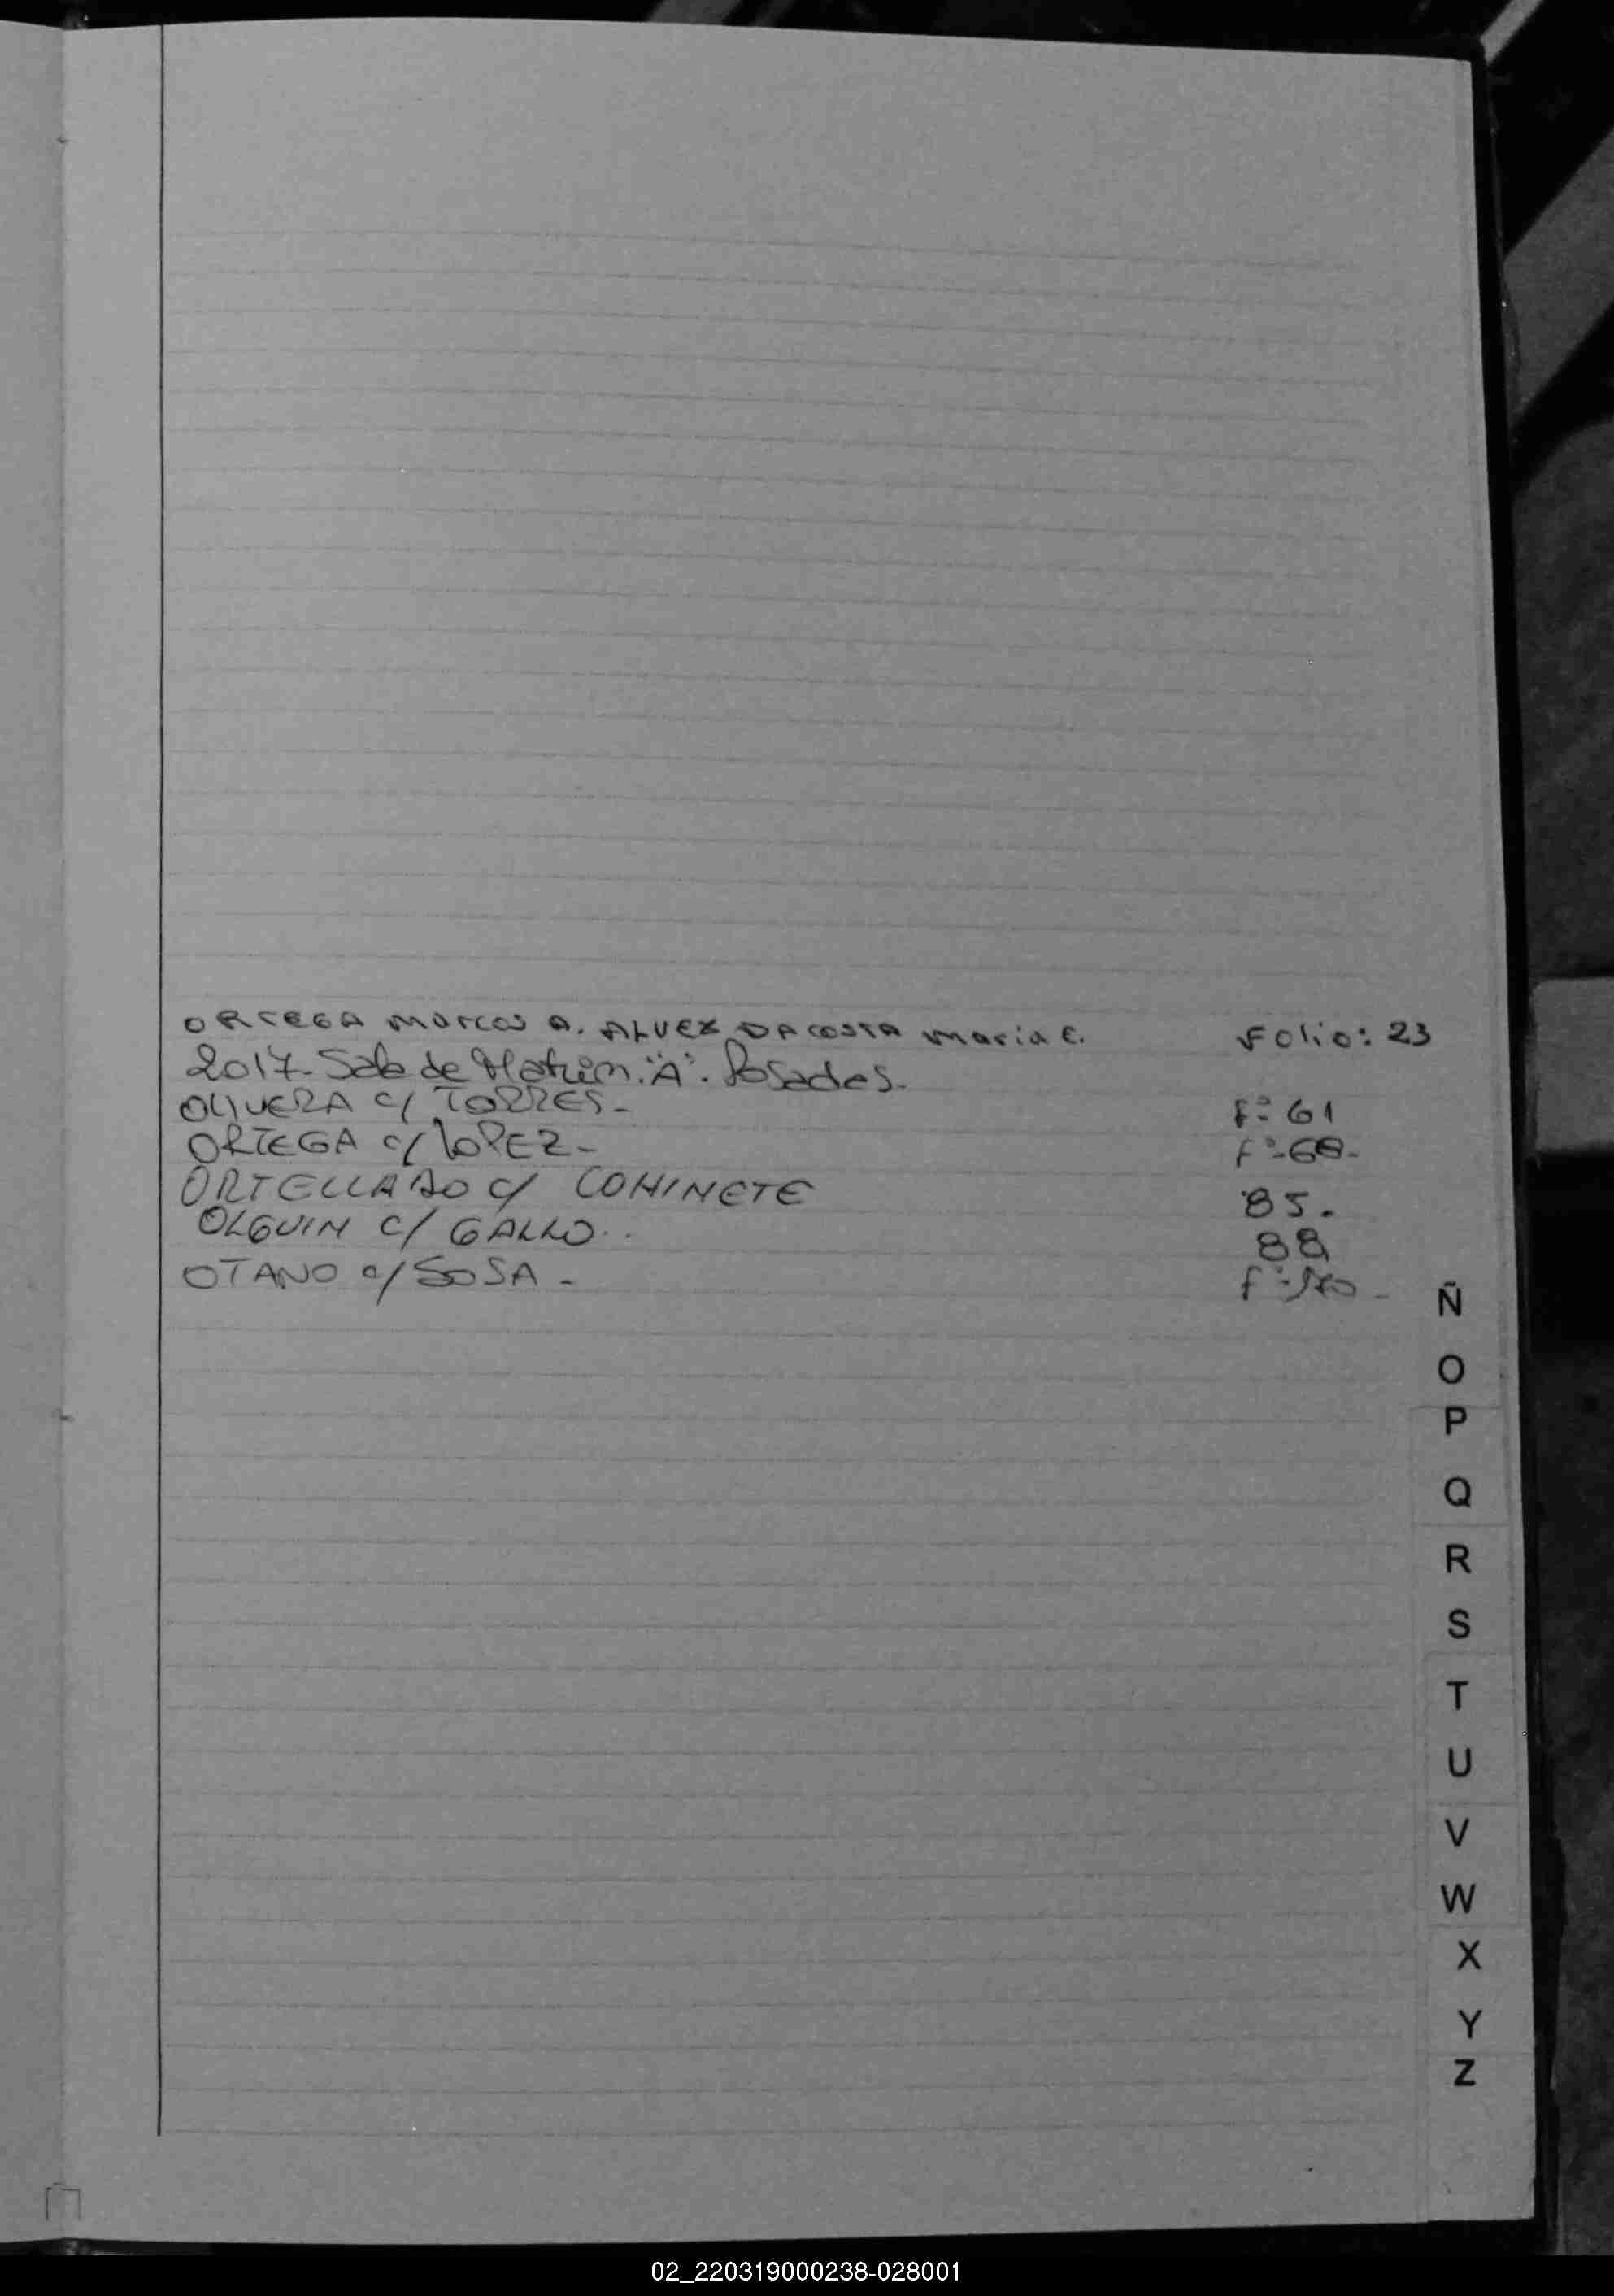 ORTEGA Marcos A. ALVEX DA COSTA Maria E. Folio: 23
2017. Sala de Matrim. "A". Posadas.
OLIVERA c/ TORRES. F° 61
ORTEGA c/ LOPEZ - F° 68-
ORTELLADO c/ COHINETE 85.
OLGUIN c/ GALLO.. 88
OTANO c/ SOSA - F°
Ñ
O
P
Q
R
S
T
U
V
W
X
Y
Z
02_220319000238-028001